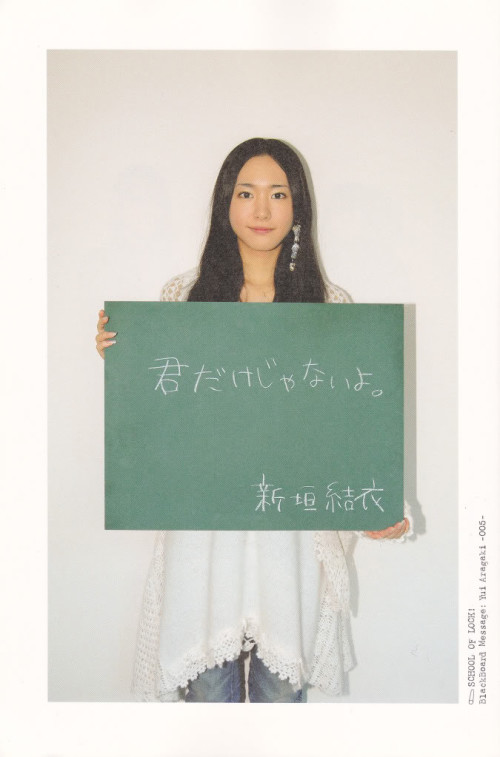 君だけじゃないよ。
新垣結衣
SCHOOL OF LOCK!
BlackBoard Message: Yui Aragaki -005-